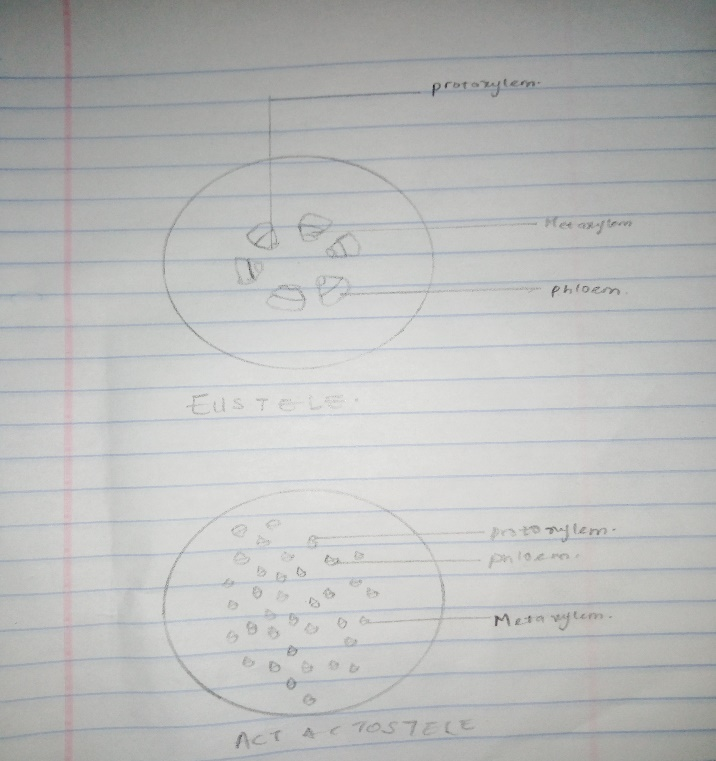 protoxylem.
Metaxylem
phloem.
EUSTELE.
protoxylem.
phloem.
Metaxylem.
ACTACTOSTELE